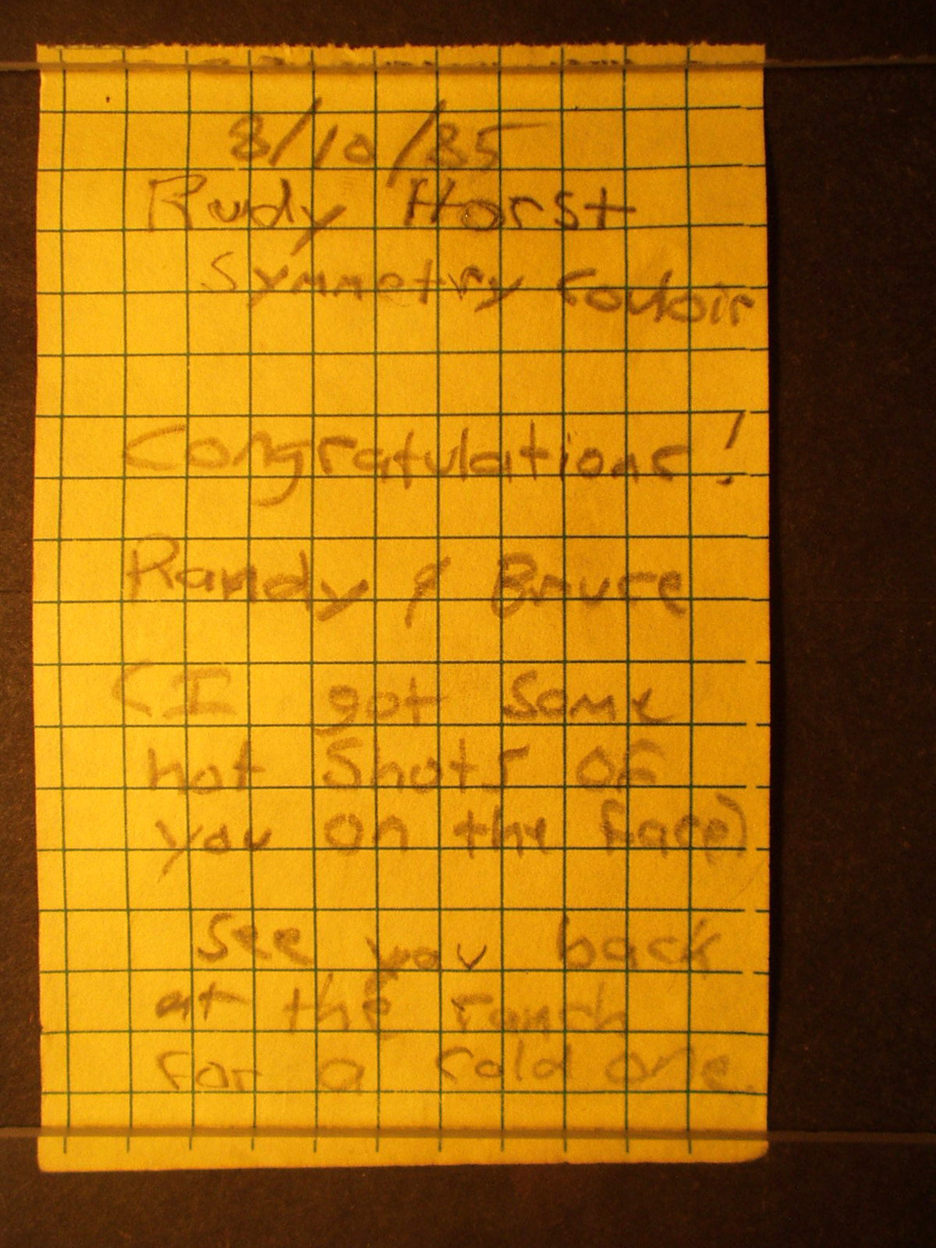 8/10/85
Rudy Horst
Symmetry Couloir
Congratulations!
Randy & Bruce
(I got some
hot shots of
you on the face)
See you back
at the ranch
for a cold one.